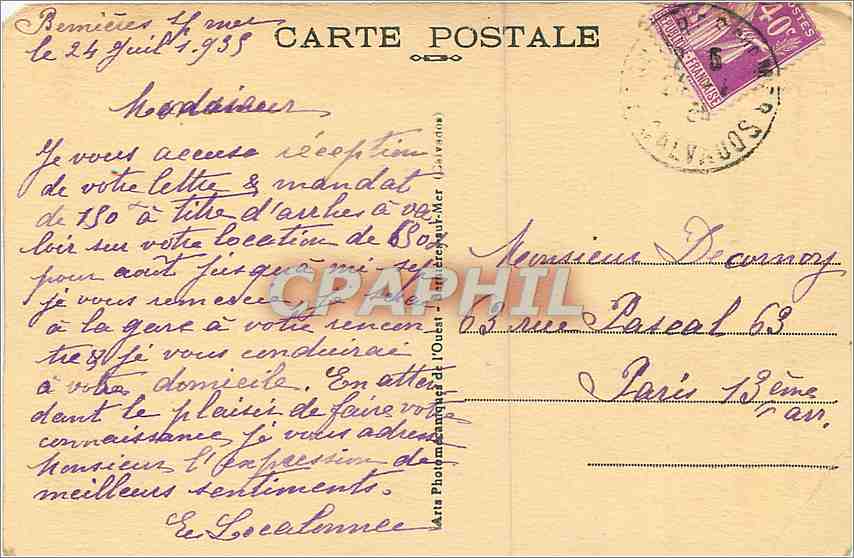 Bernières s/ mer
le 24 Juil 1935
CARTE POSTALE
Monsieur
Je vous accuse réception
de votre lettre & mandat
de 150 à titre d'arrhes à va-
loir sur votre location de 650
pour août jusqu'à mi-sep
je vous remercie, je serai
à la gare à votre rencon
tre & je vous conduirai
à votre domicile. En atten
dant le plaisir de faire votre
connaissance je vous adresse
Monsieur l'expression de
meilleurs sentiments.
Arts Photomécaniques de l'Ouest - Bernières-sur-Mer (Calvados)
40c
POSTES
REPUBLIQUE-FRANÇAISE
CALVADOS
Monsieur Decornoy
63 rue Pascal 63
Paris 13ème
arr.
CPAPHIL